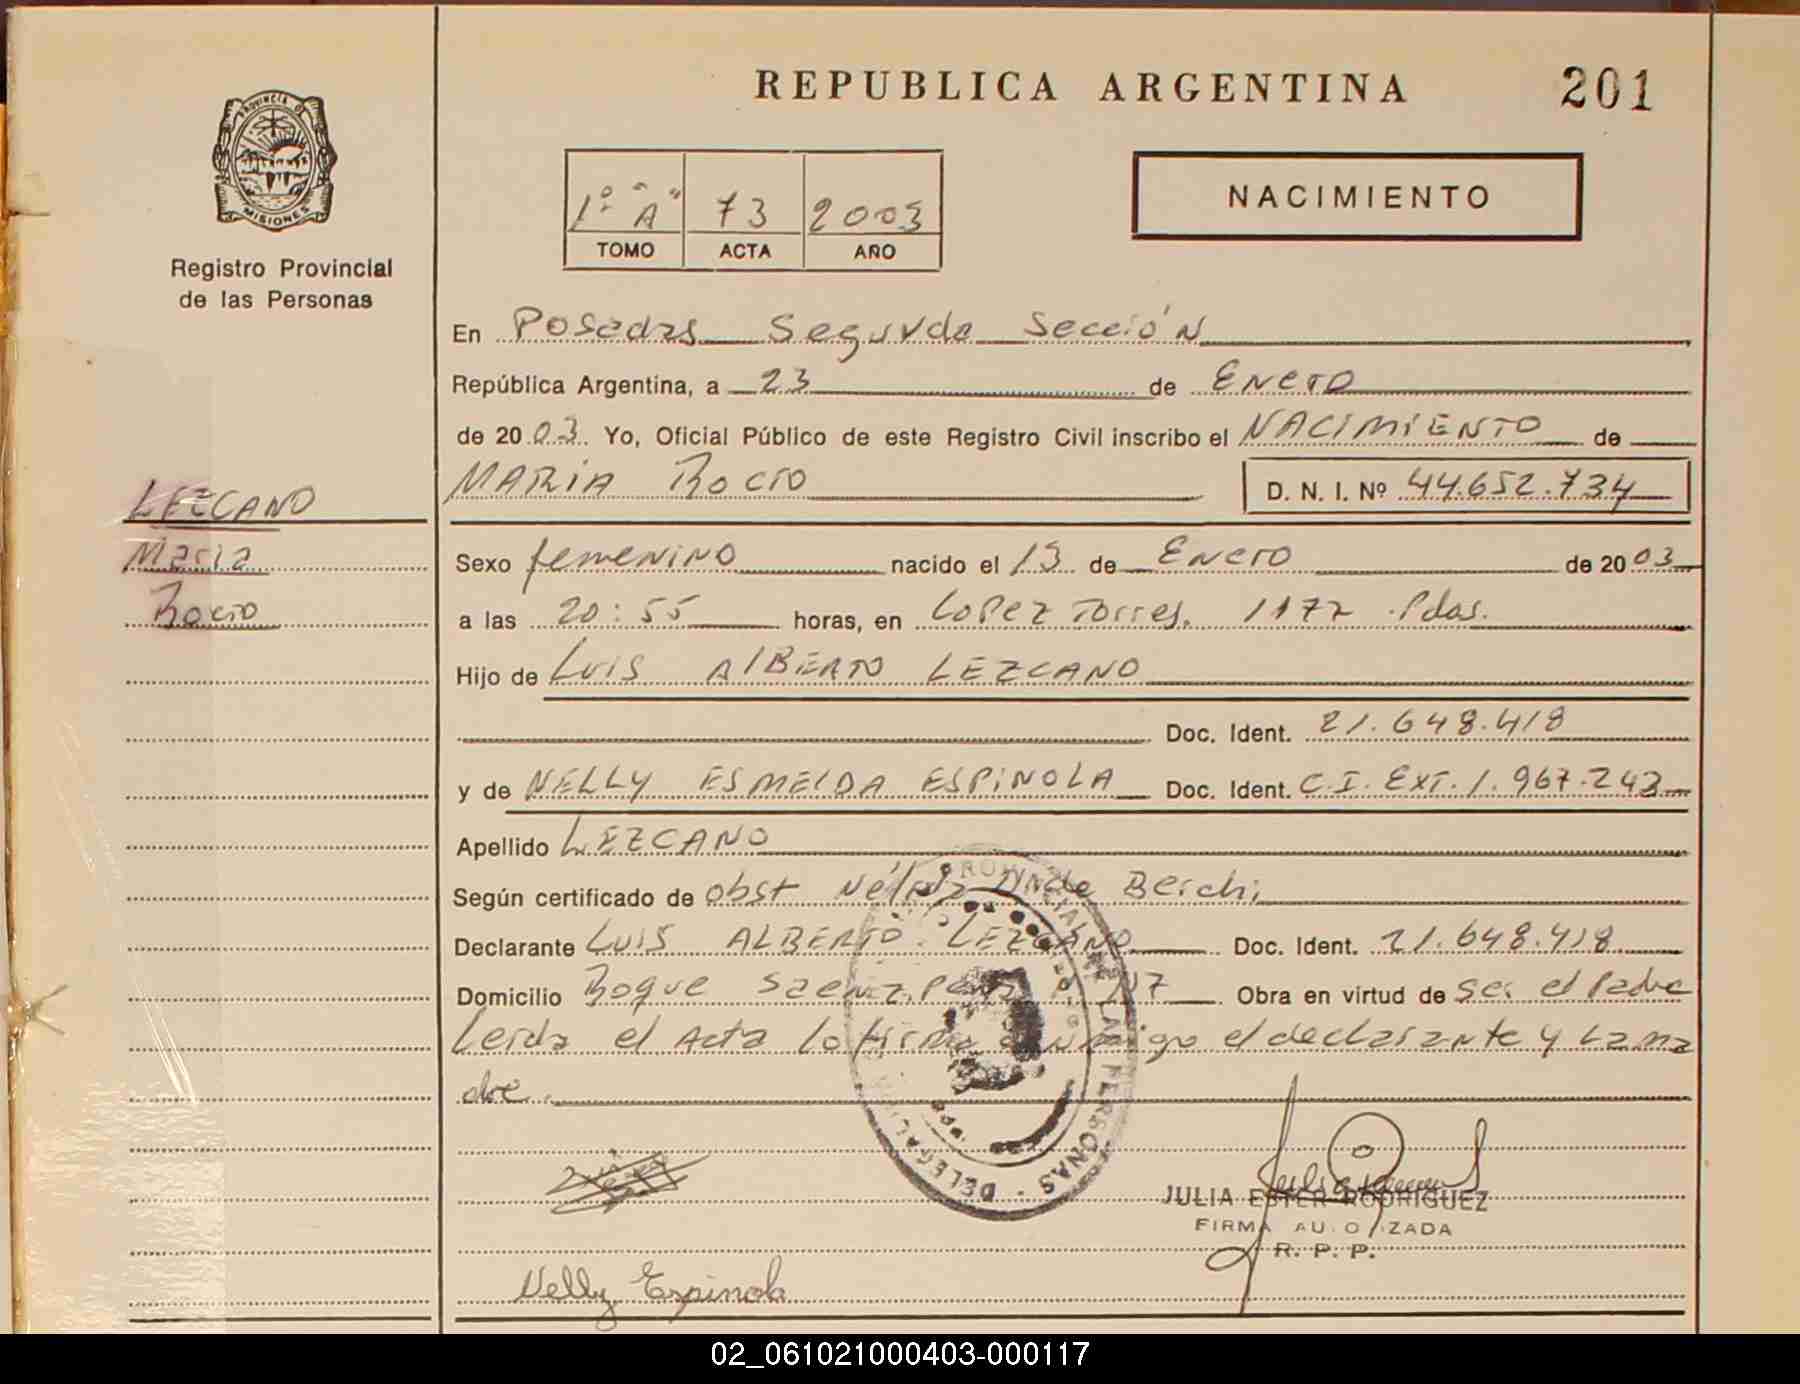 REPUBLICA ARGENTINA
201
PROVINCIA DE
MISIONES
Registro Provincial
de las Personas
1º "A" 73 2003
TOMO ACTA AÑO
NACIMIENTO
En Posadas Segunda Sección
República Argentina, a 23 de Enero
de 2003. Yo, Oficial Público de este Registro Civil inscribo el NACIMIENTO de
MARIA ROCIO
D. N. I. Nº 44.652.734
LEZCANO
Maria
Rocio
Sexo femenino nacido el 13 de Enero de 2003
a las 20:55 horas, en Lopez Torres. 1177 Pdas.
Hijo de Luis ALBERTO LEZCANO
Doc. Ident. 21.648.418
y de NELLY ESMELDA ESPINOLA Doc. Ident. C.I. EXT. 1.967.243
Apellido LEZCANO
Según certificado de obst Nélida Berchi
Declarante LUIS ALBERTO LEZCANO Doc. Ident. 21.648.418
Domicilio Roque Saenz Peña N7 Obra en virtud de ser el Padre
Leida el Acta lo firma conmigo el declarante y La ma
dre.
PROVINCIAL DE LAS PERSONAS - DELEGA
JULIA ESTER RODRIGUEZ
FIRMA AUTORIZADA
R. P. P.
Nelly Espinola
02_061021000403-000117